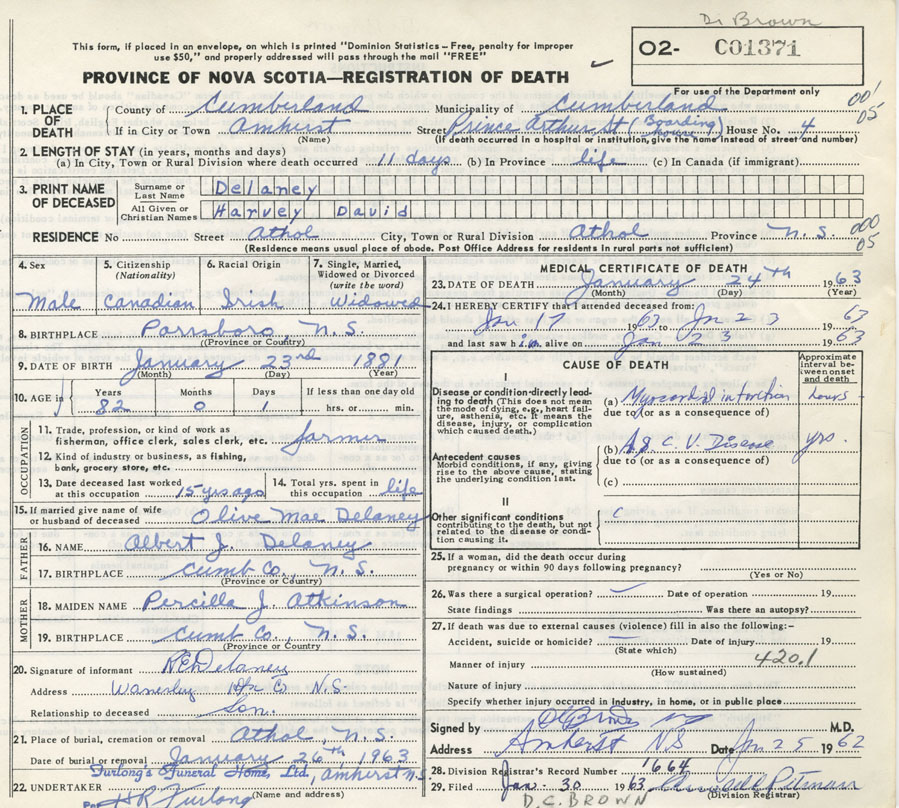 Dr Brown
This form, if placed in an envelope, on which is printed "Dominion Statistics – Free, penalty for improper
use $50," and properly addressed will pass through the mail "FREE"
O2- C01371
PROVINCE OF NOVA SCOTIA—REGISTRATION OF DEATH
For use of the Department only
001
05
1. PLACE OF DEATH County of Cumberland Municipality of Cumberland
If in City or Town Amherst Street Prince Arthur St (Boarding house) House No. 4
(Name) (If death occurred in a hospital or institution, give the name instead of street and number)
2. LENGTH OF STAY (in years, months and days)
(a) In City, Town or Rural Division where death occurred 11 days (b) In Province life (c) In Canada (if immigrant)
3. PRINT NAME OF DECEASED Surname or Last Name Delaney
All Given or Christian Names Harvey David
000
05
RESIDENCE No Street Athol City, Town or Rural Division Athol Province N.S.
(Residence means usual place of abode. Post Office Address for residents in rural parts not sufficient)
4. Sex 5. Citizenship (Nationality) 6. Racial Origin 7. Single, Married, Widowed or Divorced (write the word)
Male Canadian Irish Widowed
8. BIRTHPLACE Parrsboro, N.S.
(Province or Country)
9. DATE OF BIRTH January 23rd 1881
(Month) (Day) (Year)
10. AGE in Years Months Days If less than one day old
82 0 1 hrs. or min.
OCCUPATION
11. Trade, profession, or kind of work as
fisherman, office clerk, sales clerk, etc. farmer
12. Kind of industry or business, as fishing,
bank, grocery store, etc.
13. Date deceased last worked at this occupation 15 yrs ago 14. Total yrs. spent in this occupation life
15. If married give name of wife
or husband of deceased Olive Mae Delaney
FATHER
16. NAME Albert J. Delaney
17. BIRTHPLACE Cumb Co., N.S.
(Province or Country)
MOTHER
18. MAIDEN NAME Percilla J. Atkinson
19. BIRTHPLACE Cumb Co., N.S.
(Province or Country)
20. Signature of informant Delaney
Address Hfx Co N.S.
Relationship to deceased Son.
21. Place of burial, cremation or removal Athol, N.S.
Date of burial or removal January 26th 1963
Furlong's Funeral Home Ltd, Amherst N.S.
22. UNDERTAKER (Name and address)
Per H R Furlong
MEDICAL CERTIFICATE OF DEATH
23. DATE OF DEATH January 24th 1963
(Month) (Day) (Year)
24. I HEREBY CERTIFY that I attended deceased from:
Jan 17 1963 to Jan 23 1963
and last saw him alive on Jan 23 1963
CAUSE OF DEATH
Approximate interval between onset and death
I
Disease or condition directly leading to death (This does not mean the mode of dying, e.g., heart failure, asthenia, etc. It means the disease, injury, or complication which caused death.)
(a) Myocardial hours
due to (or as a consequence of)
(b) C. V. Disease yrs.
due to (or as a consequence of)
Antecedent causes
Morbid conditions, if any, giving rise to the above cause, stating the underlying condition last.
(c)
II
Other significant conditions
contributing to the death, but not related to the disease or condition causing it.
25. If a woman, did the death occur during
pregnancy or within 90 days following pregnancy?
(Yes or No)
26. Was there a surgical operation? Date of operation 19
State findings Was there an autopsy?
27. If death was due to external causes (violence) fill in also the following:-
Accident, suicide or homicide? Date of injury 19
(State which)
420.1
Manner of injury
(How sustained)
Nature of injury
Specify whether injury occurred in industry, in home, or in public place
Signed by M.D.
Address Amherst NS Date Jan 25 1962
28. Division Registrar's Record Number 1664
29. Filed Jan. 30 1963 Pitman
(Division Registrar)
D.C. BROWN